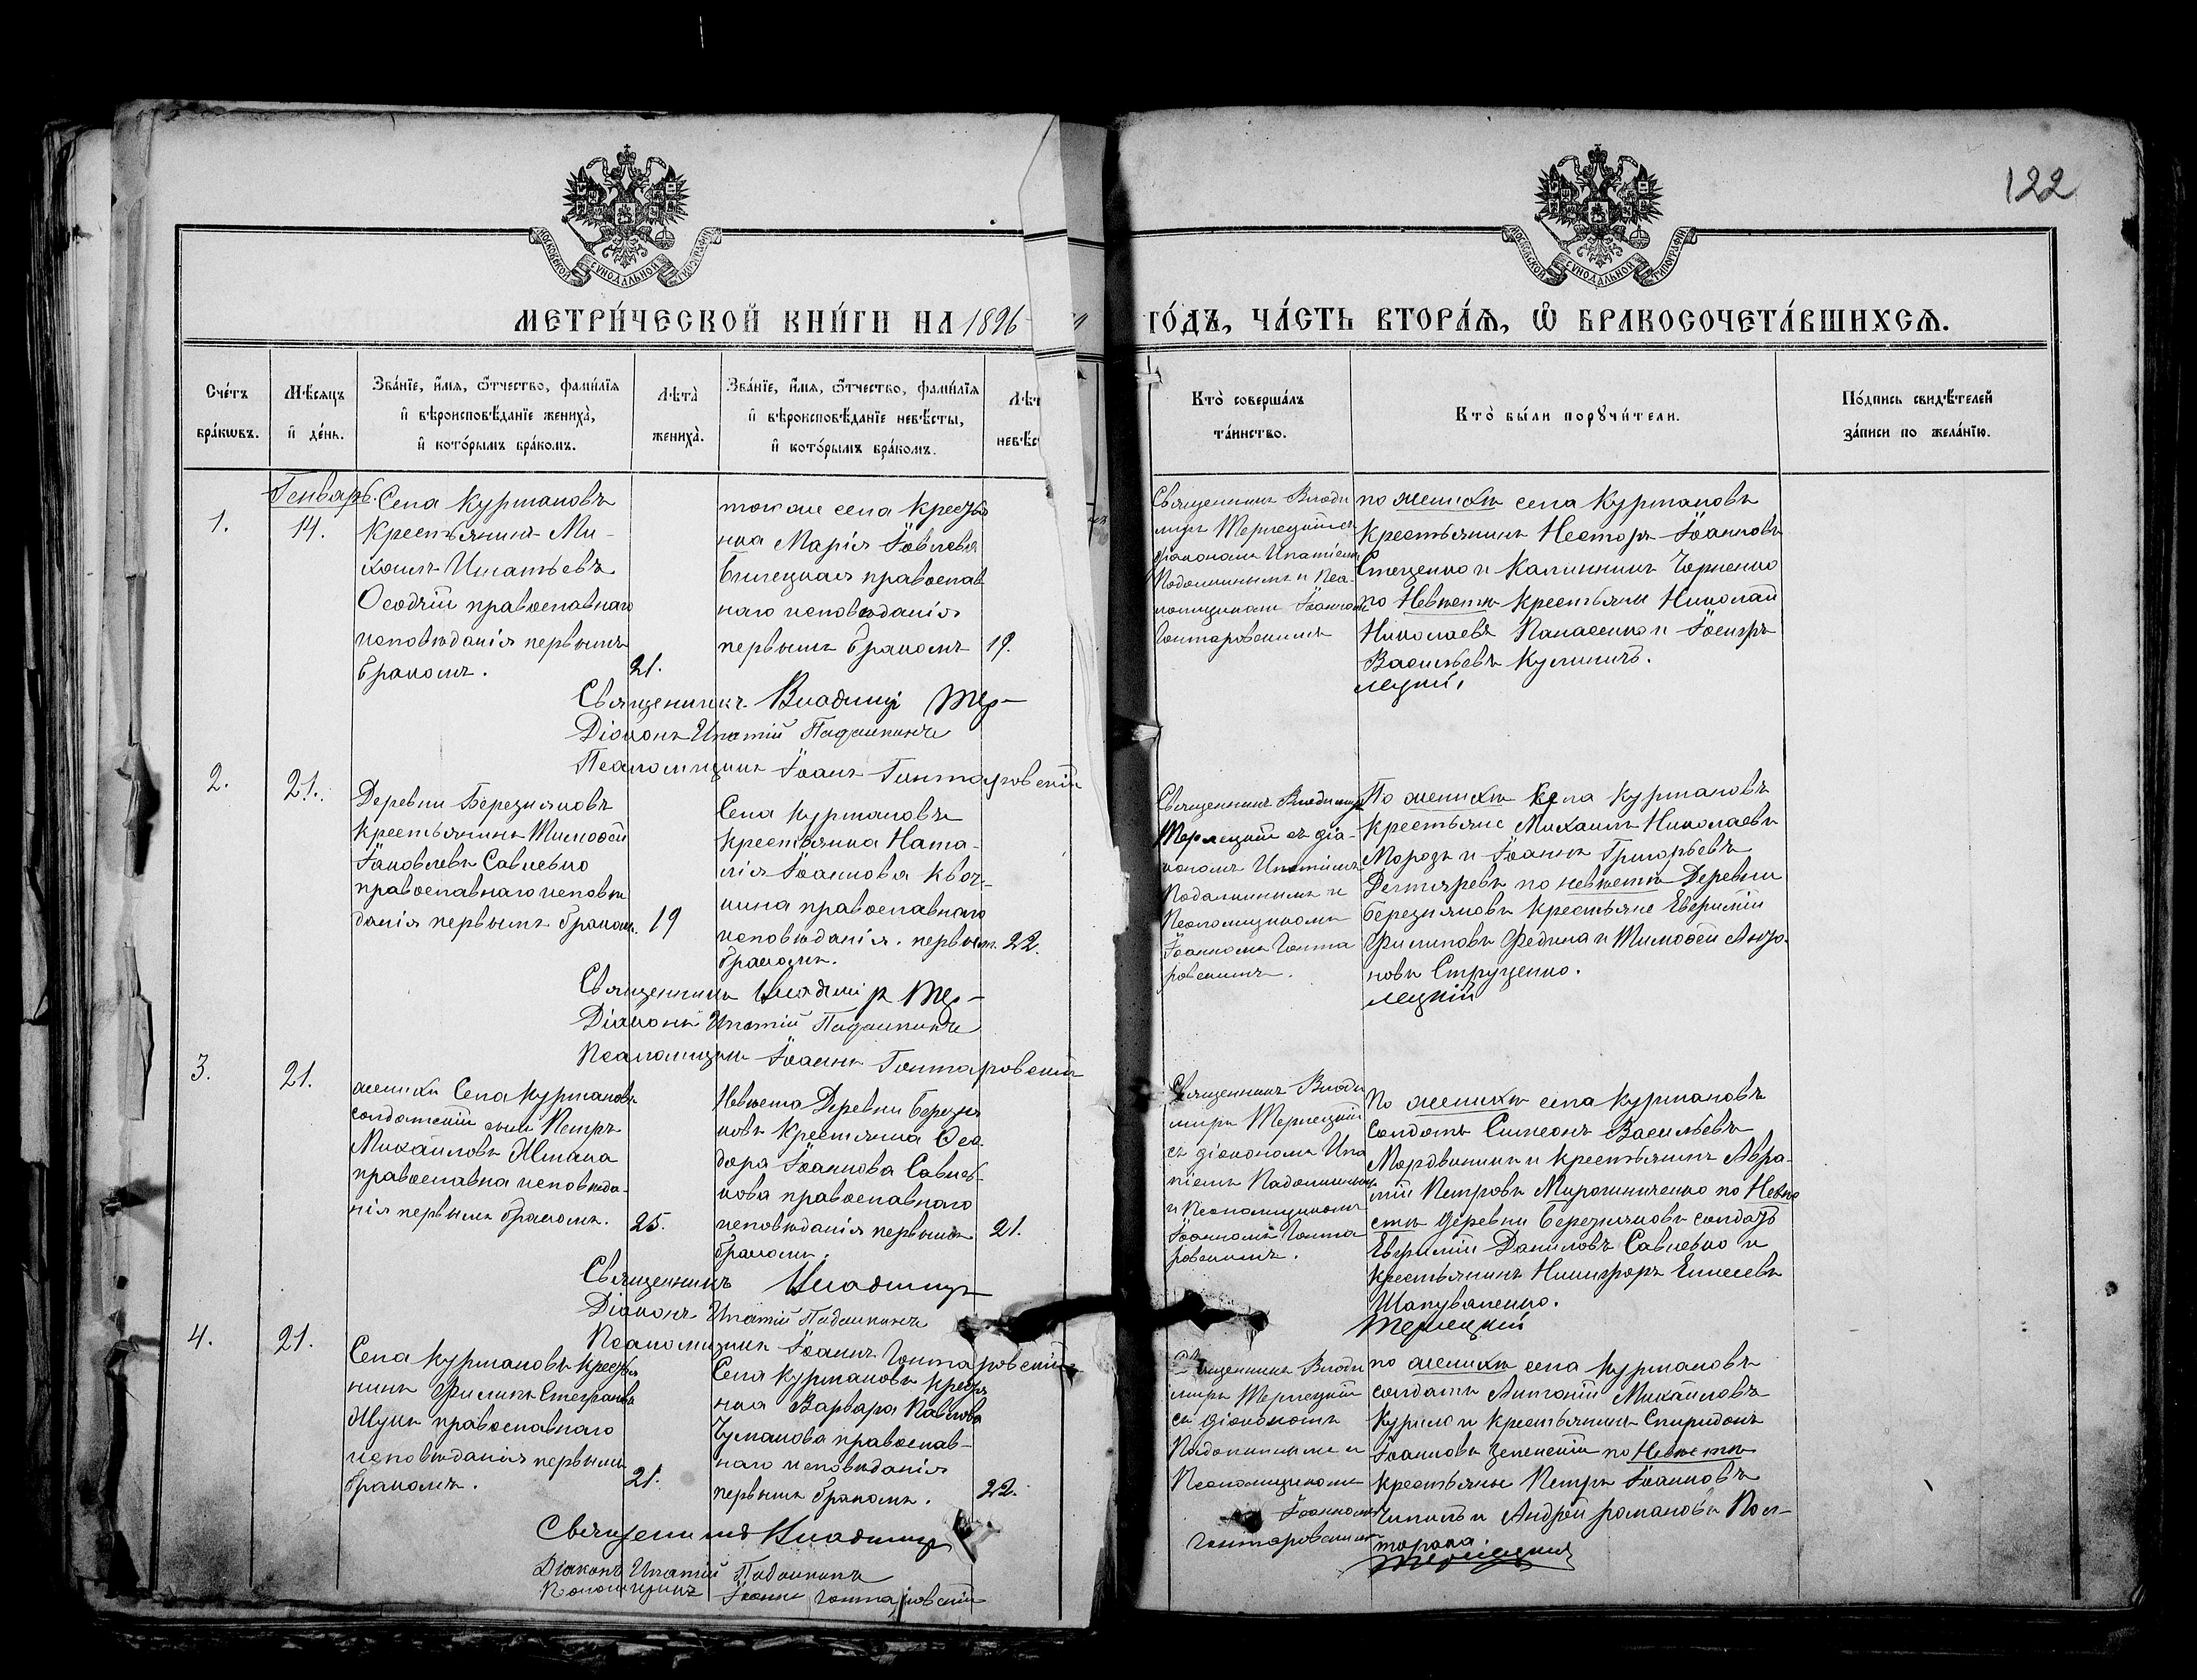 122
МОСКОВСКОЙ СѴНОДАЛЬНОЙ ТИПОГРАФІИ
МОСКОВСКОЙ СѴНОДАЛЬНОЙ ТИПОГРАФІИ
МЕТРИ́ЧЕСКОЙ КНИ́ГИ НА 1896
ГО́ДЪ, ЧА́СТЬ ВТОРА́Ѧ, Ѽ БРАКОСОЧЕТА́ВШИХСѦ.
Сче́тъ
бра́кѡвъ.
Мѣ́сяцъ
и҆ де́нь.
Зва́нїе, и҆́мя, ѻ҆́тчество, фами́лїя
и҆ вѣроисповѣ́данїе жениха̀,
и҆ кото́рымъ бра́комъ.
Лѣта̀
жениха̀.
Зва́нїе, и҆́мя, ѻ҆́тчество, фами́лїя
и҆ вѣроисповѣ́данїе невѣ́сты,
и҆ кото́рымъ бра́комъ.
Лѣт
невѣ́с
Кто̀ соверша́лъ
та́инство.
Кто̀ бы́ли порꙋчи́тели.
По́дпись свидѣ́телей
за́писи по жела́нїю.
1.
Генварь.
14.
Села Курмановъ
Крестьянинъ Ми-
хаилъ Игнатьевъ
Осодчій православнаго
исповѣданія первымъ
бракомъ.
21.
того же села Крестья
нка Марія Іовлева
Билецкая православ
наго исповѣданія
первымъ бракомъ
19.
Священникъ Влади
миръ Терлецкій съ
діакономъ Ипатіемъ
Подолинымъ и Пса-
ломщикомъ Іоанномъ
Гонтаровскимъ
по женихѣ села Курмановъ
Крестьянинъ Несторъ Іоанновъ
Стеценко и Калинникъ Чорненко
по Невѣстѣ Крестьяне Николай
Николаевъ Панасенко и Іосифъ
Васильевъ Кулиничъ.
Священникъ Владимір Тер-
лецкій.
Діаконъ Ипатій
Псаломщикъ Іоанъ Гонтаровскій
2.
21.
Деревни Березняковъ
Крестьянинъ Тимоѳей
Іаковлевъ Савченко
православнаго исповѣ
данія первымъ бракомъ.
19
Села Курмановъ
Крестьянка Ната-
лія Іоаннова Квоч-
кина православнаго
исповѣданія. первымъ
бракомъ.
22.
Священникъ Владимиръ
Терлецкій съ діа-
кономъ Ипатіемъ
и
Псаломщикомъ
Іоанномъ Гонта
ровскимъ.
По женихѣ Села Курмановъ
Крестьяне Михаилъ Николаевъ
Морозъ и Іоаннъ Григорьевъ
Дегтяревъ по невѣстѣ Деревни
Березняковъ Крестьяне Евфимій
Филиповъ Федина и Тимоѳей
Струценко.
Священникъ Владимір Тер-
лецкій
Діаконъ Ипатій
Псаломщикъ Іоаннъ Гонтаровскій
3.
21.
женихъ Села Курмановъ
солдатскій сынъ Петръ
Михайловъ
православна исповѣда-
нія первымъ бракомъ.
25.
Невѣста Деревни Березня
ковъ Крестьянка Ѳео
дора Іоаннова Савчен-
кова православнаго
исповѣданія первымъ
бракомъ.
21.
Священникъ Влади
миръ Терлецкій
съ діакономъ Ипа
тіемъ
и Псаломщикомъ
Іоанномъ Гонта
ровскимъ.
По женихѣ села Курмановъ
Солдатъ Симеонъ Васильевъ
Мордвинникъ и Крестьянинъ Авра-
мій Петровъ Мирошниченко по Невѣ
стѣ Деревни Березняковъ солдатъ
Евфимій Даниловъ Савченко и
Крестьянинъ Никифоръ Елисеевъ
Шаповаленко.
Священникъ Владимиръ
Терлецкій
Діаконъ Ипатій
Псаломщикъ Іоаннъ Гонтаровскій
4.
21.
Села Курмановъ Крестья
нинъ Филипъ Стефановъ
православнаго
исповѣданія первымъ
бракомъ.
21.
Села Курмановъ Крестья
нка Варвара Павлова
Чумакова православ-
наго исповѣданія
первымъ бракомъ.
22.
Священникъ Влади
миръ Терлецкій
съ діакономъ
и
Псаломщикомъ
Іоанномъ
Гонтаровскимъ
по женихѣ села Курмановъ
солдатъ Антоній Михайловъ
Курило и Крестьянинъ Спиридонъ
Іоанновъ Зеленскій по Невѣстѣ
Крестьяне Петръ Іоанновъ
и Андрей Романовъ Пол-
торака
Священникъ Владимиръ
Терлецкій
Діаконъ Ипатій
Псаломщикъ Іоаннъ Гонтаровскій